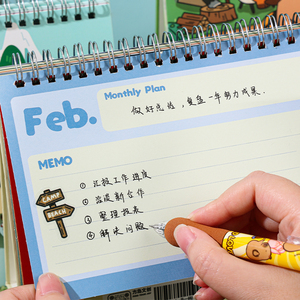 Feb.
Monthly Plan
做好总结，复盘一年努力成果.
MEMO
① 汇报工作进度
② 洽谈新合作
③ 整理报表
④ 解决问题
CAMP
BEACH